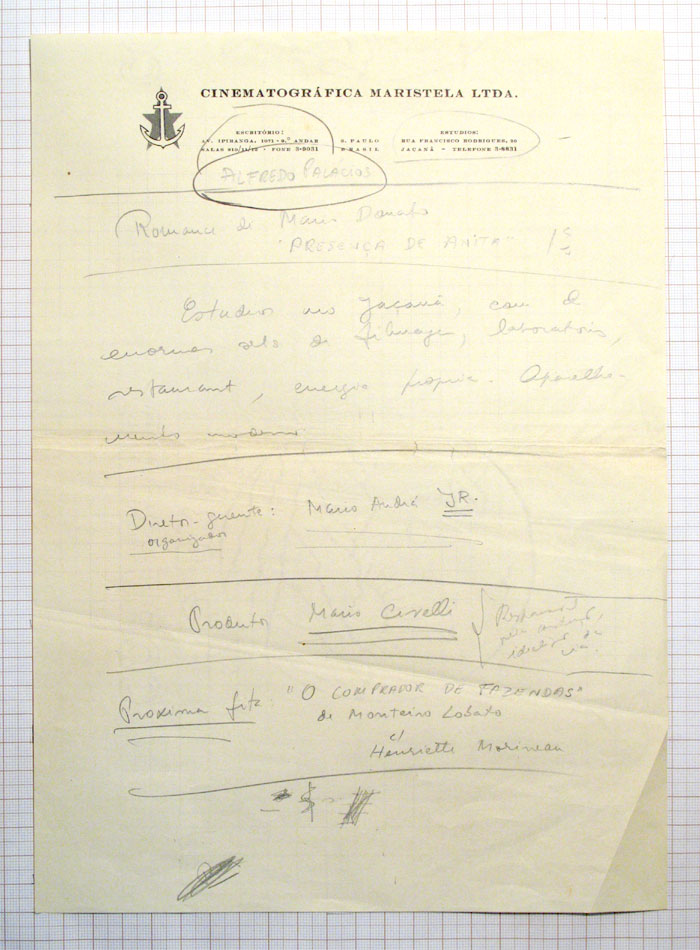 CINEMATOGRÁFICA MARISTELA LTDA.
ESCRITÓRIO:
AV. IPIRANGA, 1071 - 9.º ANDAR
SALAS 910/11/12 - FONE 3-9831
S. PAULO
BRASIL
ESTUDIOS:
RUA FRANCISCO RODRIGUES, 20
JAÇANÃ - TELEFONE 3-9831
ALFREDO PALACIOS
Romance de Mario Donato
"PRESENÇA DE ANITA"
Estudios no Jaçanã, com
enormes de filmagem, laboratorios,
restaurant, energia propria. Aparelha-
mento moderno
Diretor-gerente: Mario Andrá JR.
organizador
Produtor Mario Civelli
Proxima fita: "O COMPRADOR DE FAZENDAS"
de Monteiro Lobato
c/
Henriette Morineau